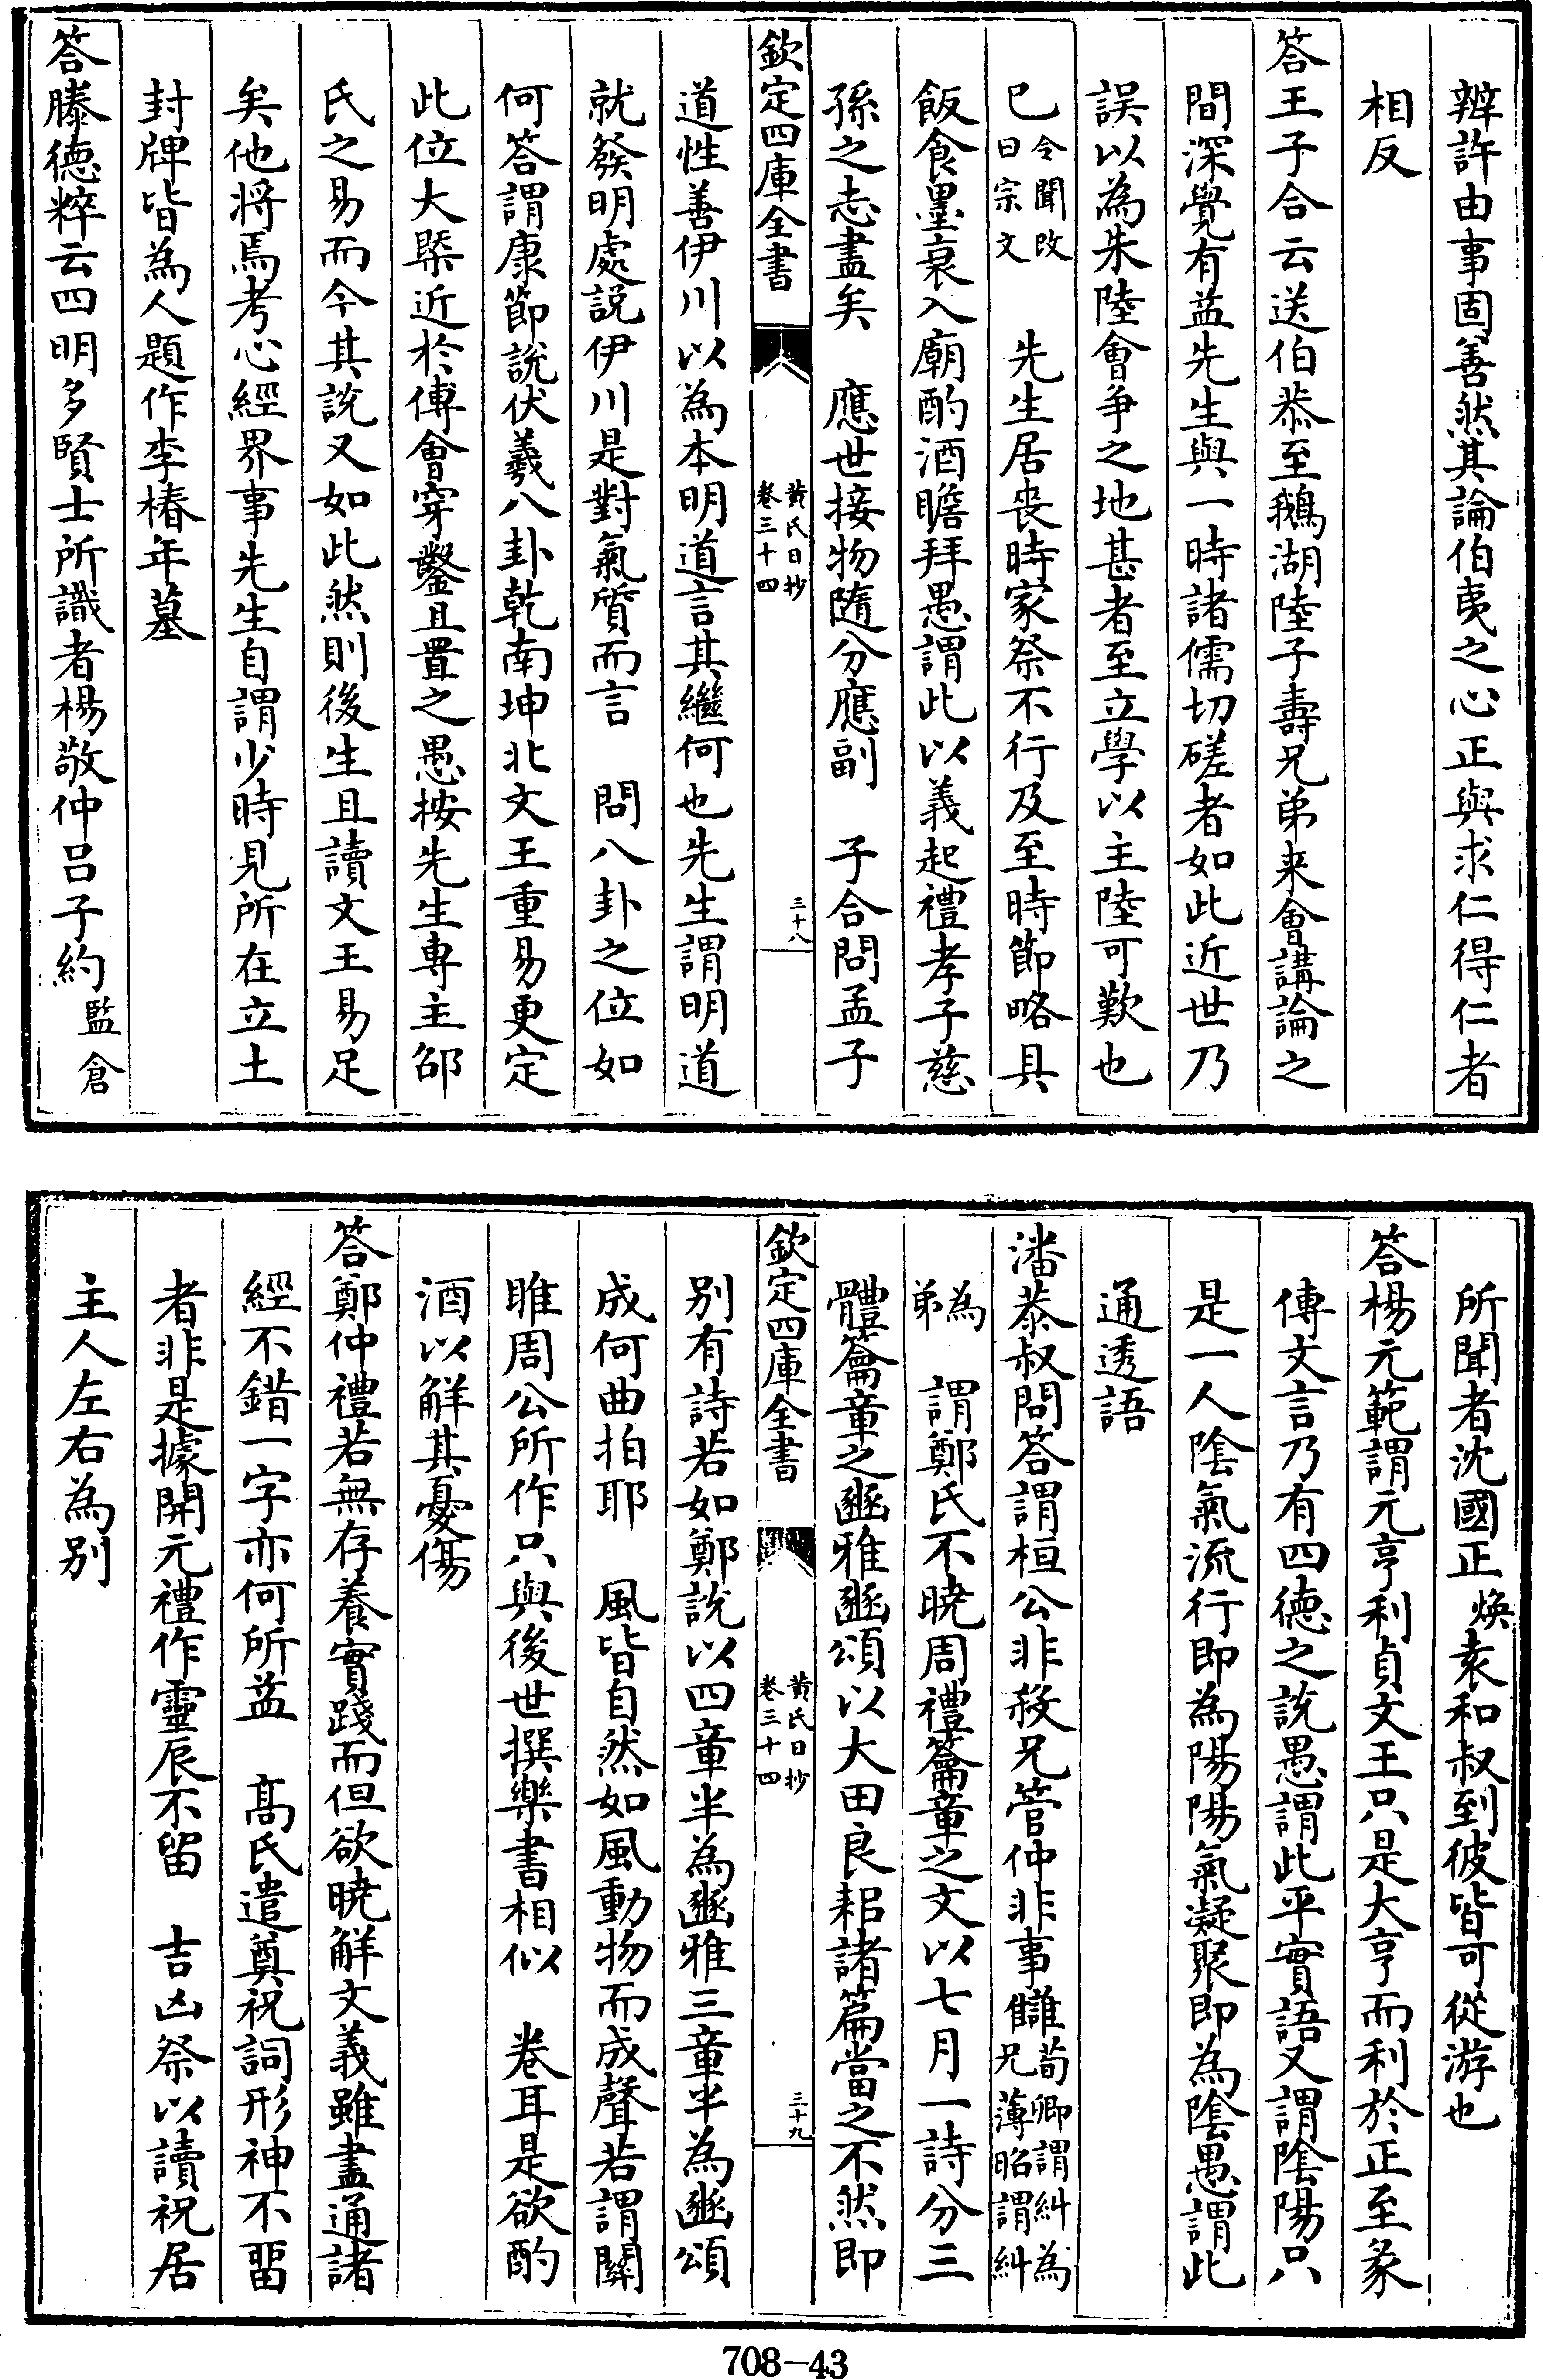 辨許由事固善然其論伯夷之心正與求仁得仁者
相反
答王子合云送伯恭至鵝湖陸子壽兄弟来會講論之
間深覺有益先生與一時諸儒切磋者如此近世乃
誤以為朱陸會争之地甚者至立學以主陸可歎也
已令聞改曰宗文　先生居喪時家祭不行及至時節略具
飯食墨衰入廟酌酒瞻拜愚謂此以義起禮孝子慈
孫之志盡矣　應世接物隨分應副　子合問孟子
欽定四庫全書
黄氏日抄
卷三十四
三十八
道性善伊川以為本明道言其繼何也先生謂明道
就發明處説伊川是對氣質而言　問八卦之位如
何答謂康節說伏羲八卦乾南坤北文王重易更定
此位大槩近於傅會穿鑿且置之愚按先生專主邵
氏之易而今其說又如此然則後生且讀文王易足
矣他將焉考心經界事先生自謂少時見所在立土
封牌皆為人題作李椿年墓
答滕德粹云四明多賢士所識者楊敬仲吕子約監倉
所聞者沈國正煥袁和叔到彼皆可從游也
答楊元範謂元亨利貞文王只是大亨而利於正至彖
傳文言乃有四德之說愚謂此平實語又謂陰陽只
是一人陰氣流行即為陽陽氣凝聚即為陰愚謂此
通透語
潘恭叔問答謂桓公非殺兄管仲非事讎荀卿謂糾為兄薄昭謂糾
為弟　謂鄭氏不曉周禮籥章之文以七月一詩分三
體籥章之豳雅豳頌以大田良耜諸篇當之不然即
欽定四庫全書
黄氏日抄
卷三十四
三十九
别有詩若如鄭說以四章半為豳雅三章半為豳頌
成何曲拍耶　風皆自然如風動物而成聲若謂關
雎周公所作只與後世撰樂書相似　卷耳是欲酌
酒以解其憂傷
答鄭仲禮若無存養實踐而但欲曉解文義雖盡通諸
經不錯一字亦何所益　髙氏遣奠祝詞形神不留
者非是據開元禮作靈辰不留　吉凶祭以讀祝居
主人左右為别
708-43